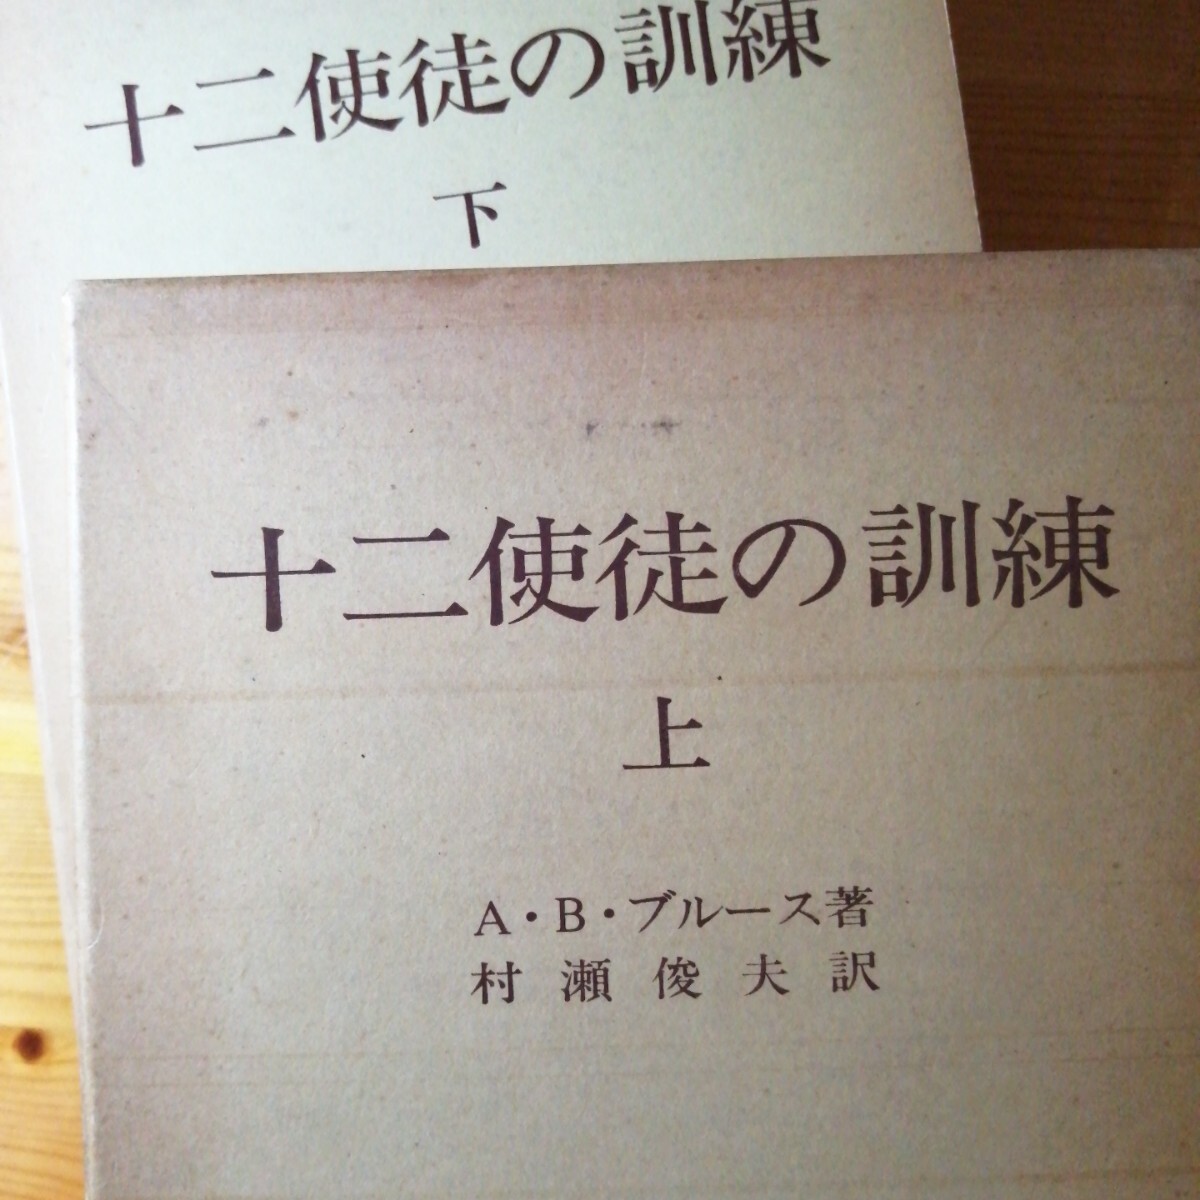 十二使徒の訓練
下
十二使徒の訓練
上
A・B・ブルース著
村瀬俊夫訳